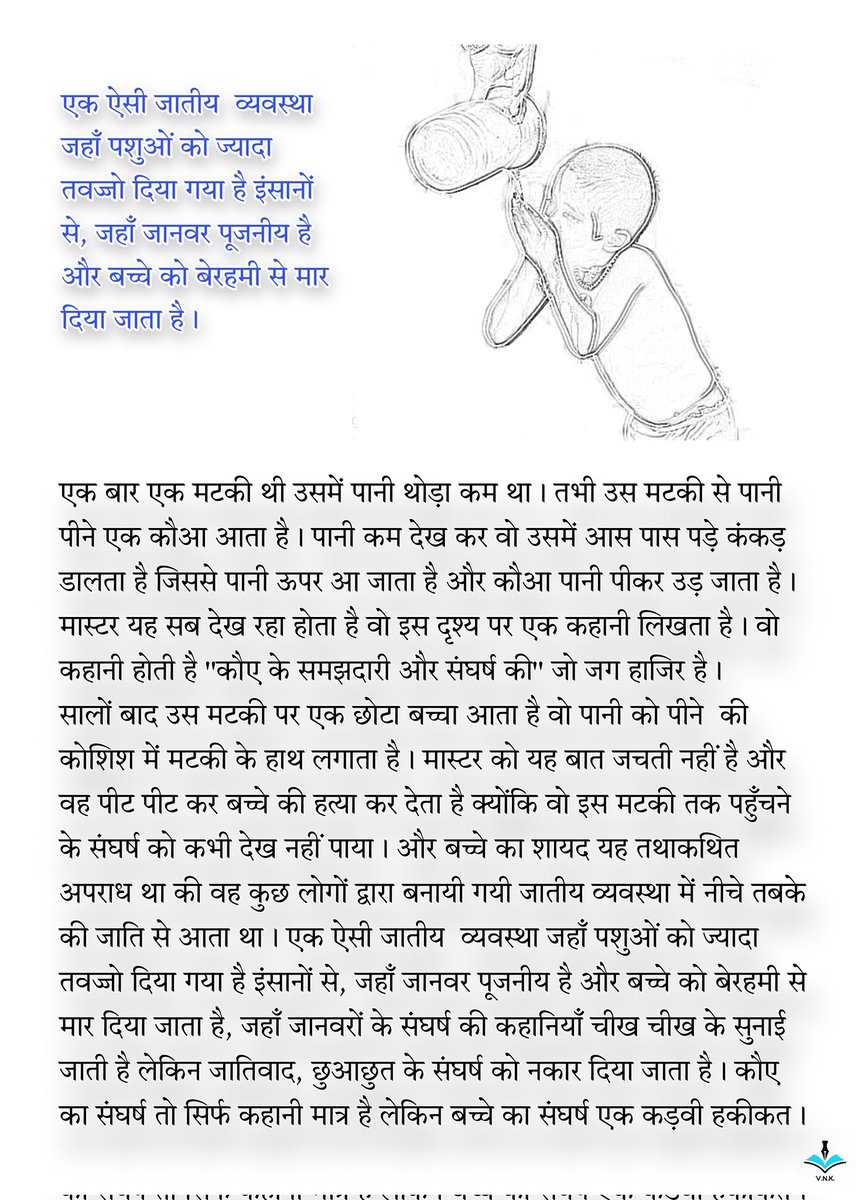 एक ऐसी जातीय व्यवस्था
जहाँ पशुओं को ज्यादा
तवज्जो दिया गया है इंसानों
से, जहाँ जानवर पूजनीय है
और बच्चे को बेरहमी से मार
दिया जाता है।
एक बार एक मटकी थी उसमें पानी थोड़ा कम था। तभी उस मटकी से पानी
पीने एक कौआ आता है। पानी कम देख कर वो उसमें आस पास पड़े कंकड़
डालता है जिससे पानी ऊपर आ जाता है और कौआ पानी पीकर उड़ जाता है।
मास्टर यह सब देख रहा होता है वो इस दृश्य पर एक कहानी लिखता है। वो
कहानी होती है "कौए के समझदारी और संघर्ष की" जो जग हाजिर है।
सालों बाद उस मटकी पर एक छोटा बच्चा आता है वो पानी को पीने की
कोशिश में मटकी के हाथ लगाता है। मास्टर को यह बात जचती नहीं है और
वह पीट पीट कर बच्चे की हत्या कर देता है क्योंकि वो इस मटकी तक पहुँचने
के संघर्ष को कभी देख नहीं पाया। और बच्चे का शायद यह तथाकथित
अपराध था की वह कुछ लोगों द्वारा बनायी गयी जातीय व्यवस्था में नीचे तबके
की जाति से आता था। एक ऐसी जातीय व्यवस्था जहाँ पशुओं को ज्यादा
तवज्जो दिया गया है इंसानों से, जहाँ जानवर पूजनीय है और बच्चे को बेरहमी से
मार दिया जाता है, जहाँ जानवरों के संघर्ष की कहानियाँ चीख चीख के सुनाई
जाती है लेकिन जातिवाद, छुआछुत के संघर्ष को नकार दिया जाता है। कौए
का संघर्ष तो सिर्फ कहानी मात्र है लेकिन बच्चे का संघर्ष एक कड़वी हकीकत।
V.N.K.